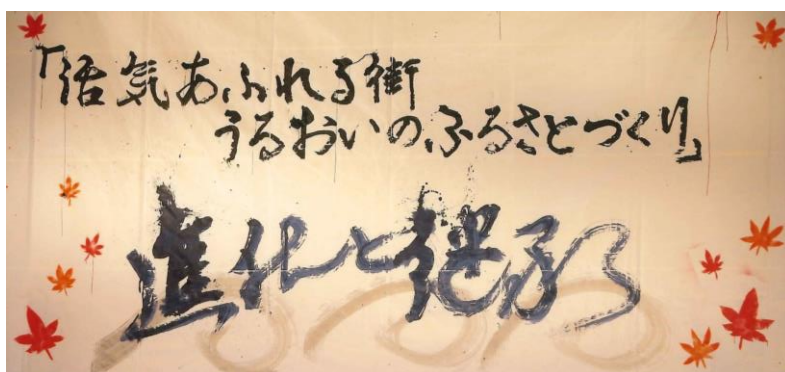 「活気あふれる街
うるおいのふるさとづくり」
進化と継承